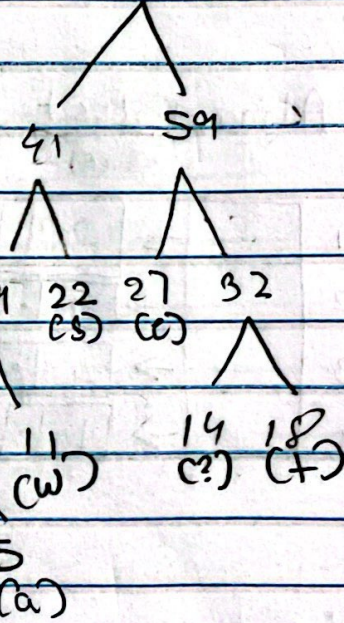 41 59
22 27 32
(S) (C)
11 14 18
(W) (?) (t)
5
(a)